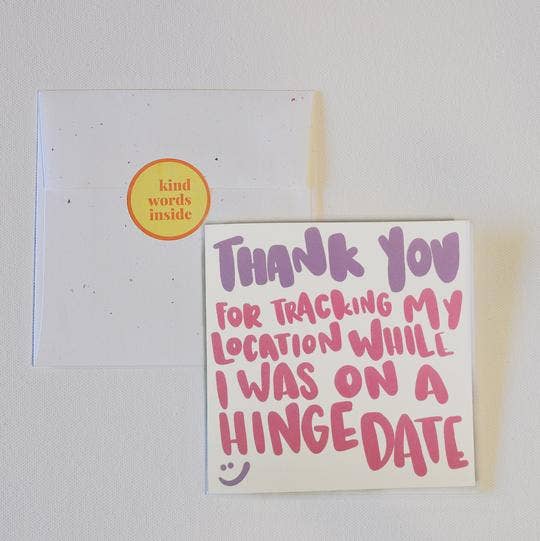 kind
words
inside
THANK YOU
FOR TRACKING MY
LOCATION WHILE
I WAS ON A
HINGE DATE